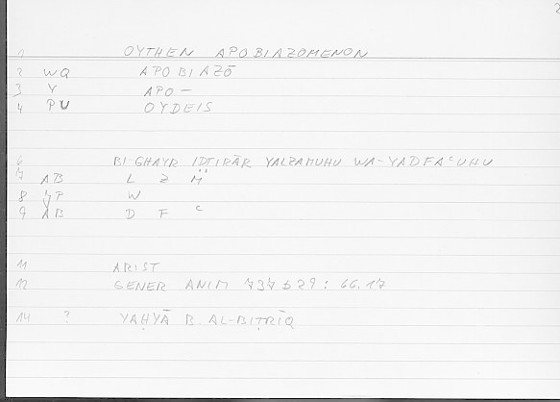 2
1 OYTHEN APOBIAZOMENON
2 WQ APOBIAZŌ
3 V APO-
4 PU OYDEIS
6 BI-GHAYR IDTIRĀR YALZAMUHU WA-YADFAʿUHU
7 AB L Z M
8 YP W
9 AB D F ʿ
11 ARIST
12 GENER ANIM 737 b 29 : 66.17
14 ? YAḤYĀ B. AL-BIṬRĪQ